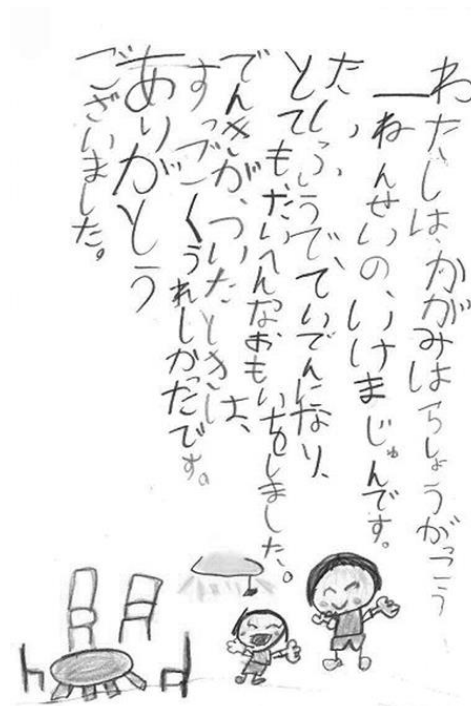 わたしは、かがみはらしょうがっこう
一ねんせいの、いけまじゅんです。
たいふうで、ていでんになり、
とても、たいへんなおもいをしました。
でんきが、ついたときは、
すっごくうれしかったです。
ありがとう
ございました。